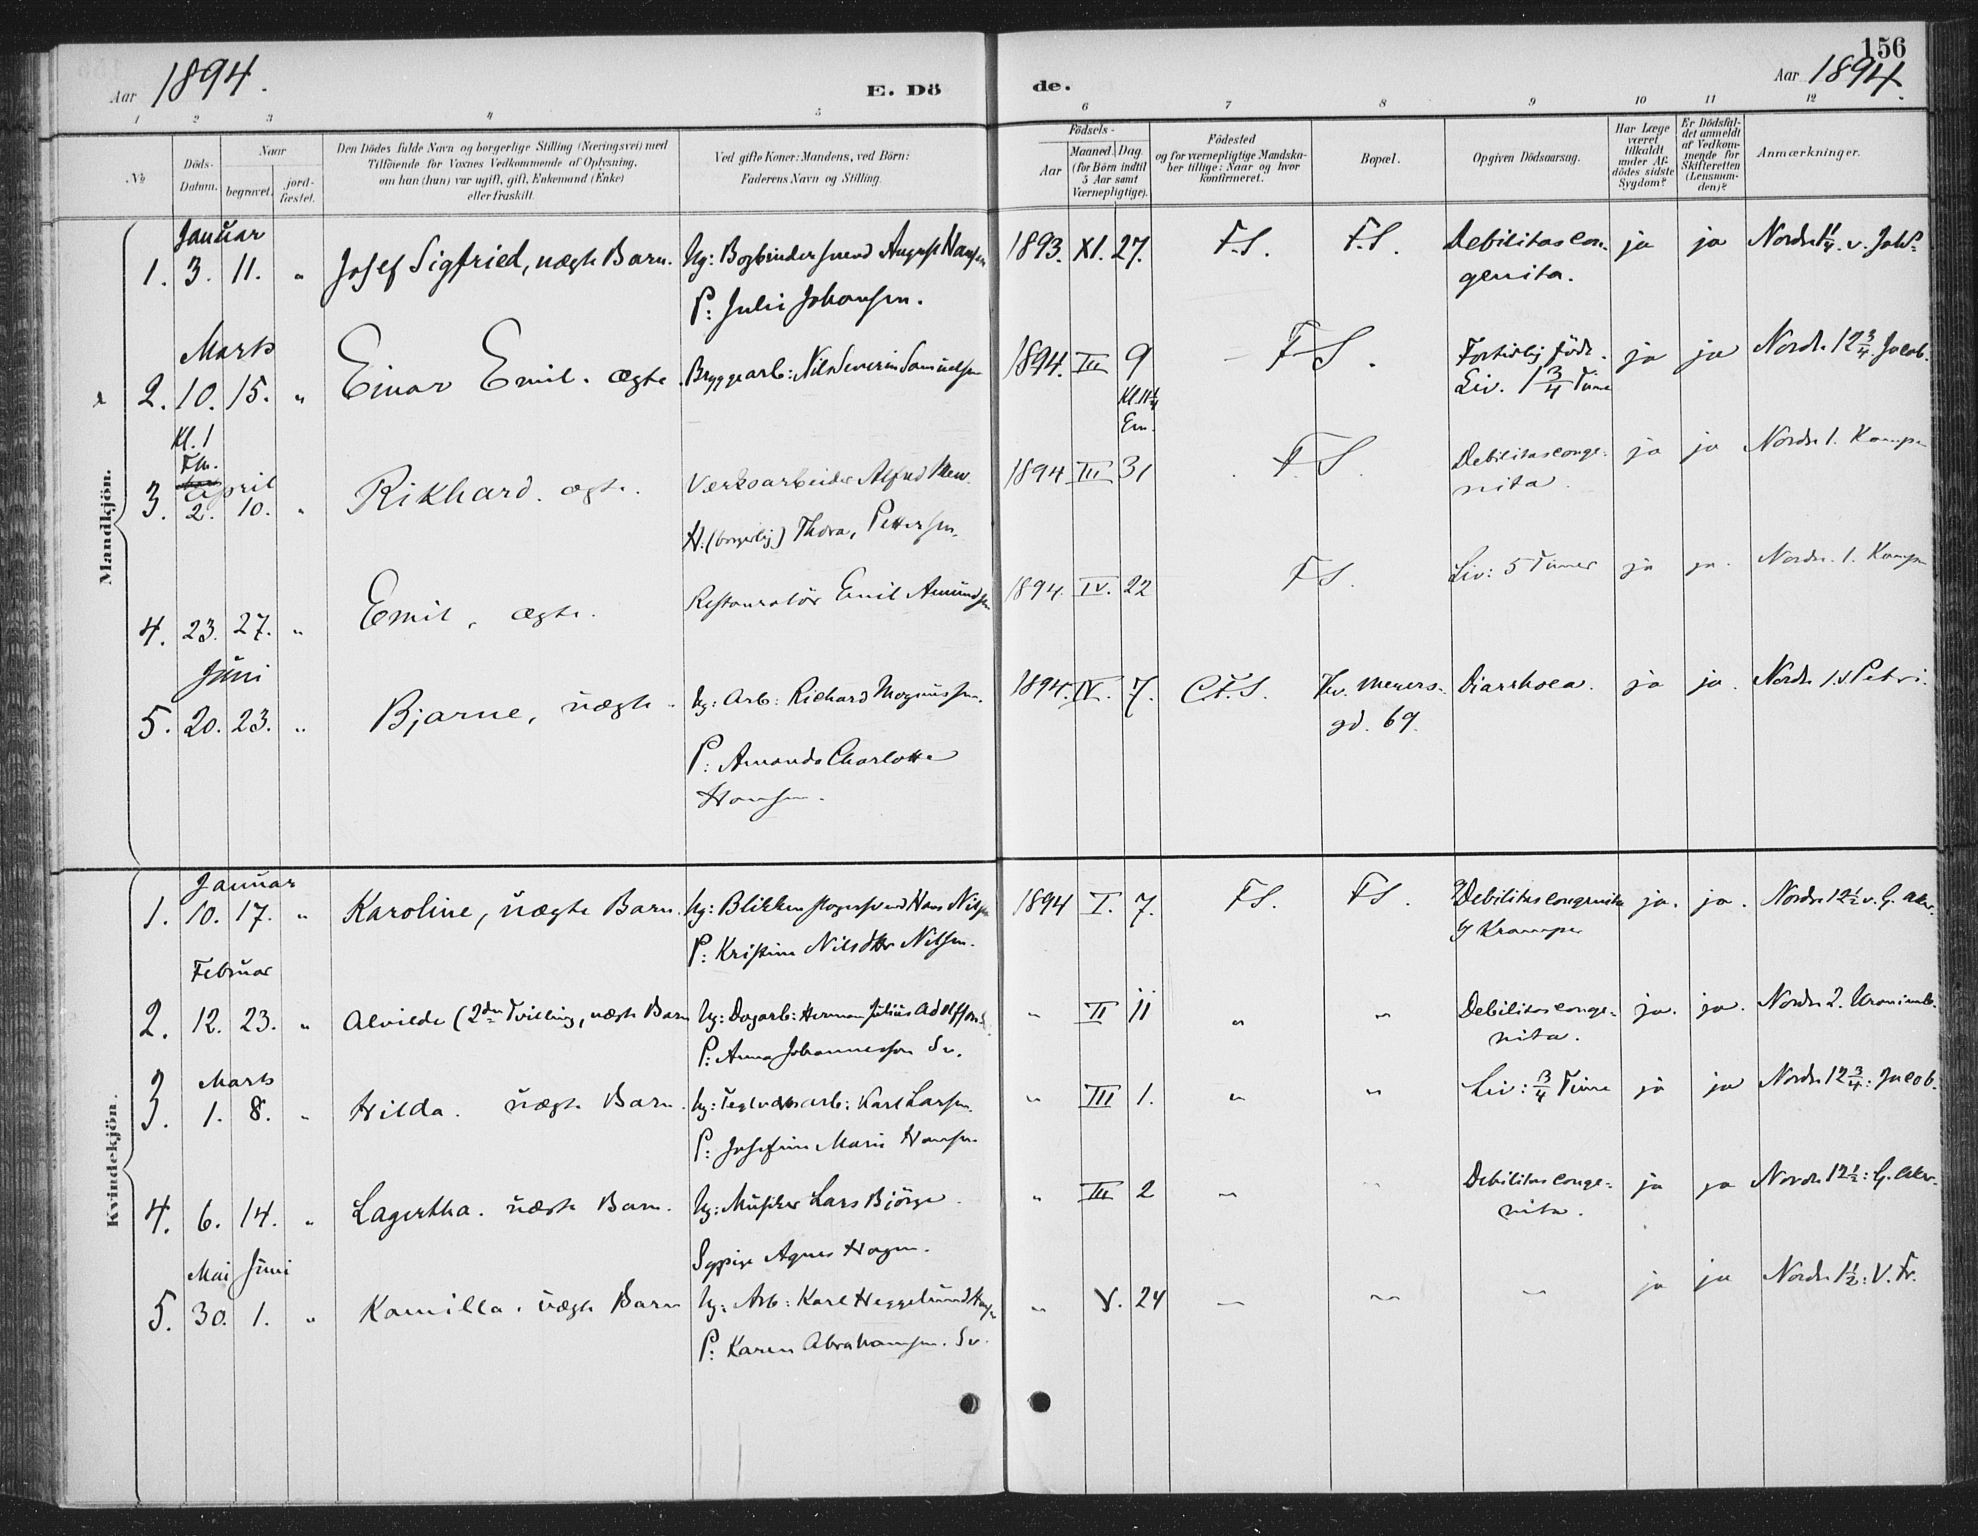 156
Aar 1894.
E. Döde.
Aar 1894.
1 2 3 4 5 6 7 8 9 10 11 12
№
Döds-Datum.
Naar
begravet.
jord-fæstet.
Den Dödes fulde Navn og borgerlige Stilling (Næringsvei) med
Tilföiende for Voxnes Vedkommende af Oplysning,
om han (hun) var ugift, gift, Enkemand (Enke)
eller fraskilt.
Ved gifte Koner: Mandens, ved Börn:
Faderens Navn og Stilling.
Födsels-
Aar
Maaned. Dag.
(for Börn indtil
5 Aar samt
Værnepligtige).
Födested
og for værnepligtige Mandska-
ber tillige: Naar og hvor
konfirmeret.
Bopæl.
Opgiven Dödsaarsag.
Har Læge
været
tilkaldt
under Af-
dödes sidste
Sygdom?
Er Dödsfal-
det anmeldt
af Vedkom-
mende for
Skifteretten
(Lensman-
den)?
Anmærkninger.
Mandkjön.
Januar
1. 3. 11. " Josef Sigfried, uægte Barn. Ug: Bogbindersvend August Hansen 1893. XI. 27. F.S. F.S. Debilitas con- ja ja Nordr. 1¼. v. Joh
P: Julie Johansen. genita.
Marts
2. 10. 15. " Einar Emil. ægte Bryggearb: Nils Severin Samuelsen 1894. III 9 F S. Fortidlig födt. ja ja Nordr. 12¾. Jacob.
Kl. 1 Fm. Kl. 11¼ Em. Liv. 1¾ Time
April
3. 2. 10. " Rikhard. ægte. Værksarbeider Alfred 1894 III 31 F S. Debilitas conge- ja ja Nordr. 1. Kampen
H. (borgerlig) Thora, Pettersen. nita.
4. 23. 27. " Emil, ægte. Restauratör Emil Amundsen 1894. IV. 22 F S. Liv: 5 Timer ja ja. Nordr. 1. Kampen
Juni
5. 20. 23. " Bjarne, uægte. Ug: Arb: Richard Magnussen. 1894. IV. 7. C.F.S. Thv. Meyers- Diarrhoea. ja ja. Nordr. 1 v Petri.
P: Amanda Charlotte gd. 69.
Hansen.
Kvindekjön.
Januar
1. 10. 17. " Karoline, uægte Barn. Ug: Blikkenslagersvend Hans Nilsen 1894 I. 7. F.S. F S. Debilitas congenita ja. ja. Nordr. 12½ v. G. Aker.
P: Kristine Nilsdttr Nilsen. Krampe
Februar
2. 12. 23. " Alvilde (2den Tvilling, uægte Barn Ug: Dagarb: Herman Julius Adolfson " II 11 " " Debilitas conge- ja. ja. Nordr. 2.
P: Anna Johannesson Sv. nita.
Marts
3. 1. 8. " Hilda. uægte Barn. Ug: Teglværksarb: Karl Larsen. " III 1. " " Liv: ¾ Time ja ja Nordr. 12¾: Jacob.
P: Josefine Marie Hansen
4. 6. 14. " Lagertha. uægte Barn. Ug: Musiker Lars Björge. " III 2 " " Debilitas conge- ja ja Nordr. 12½: G. Aker.
Sypige Agnes Hagen. nita.
Mai Juni
5. 30. 1. " Kamilla. uægte Barn Ug: Arb: Karl Heggelund " V. 24 " " " ja ja Nordr. 1½: V. Fr.
P: Karen Abrahamsen. Sv.